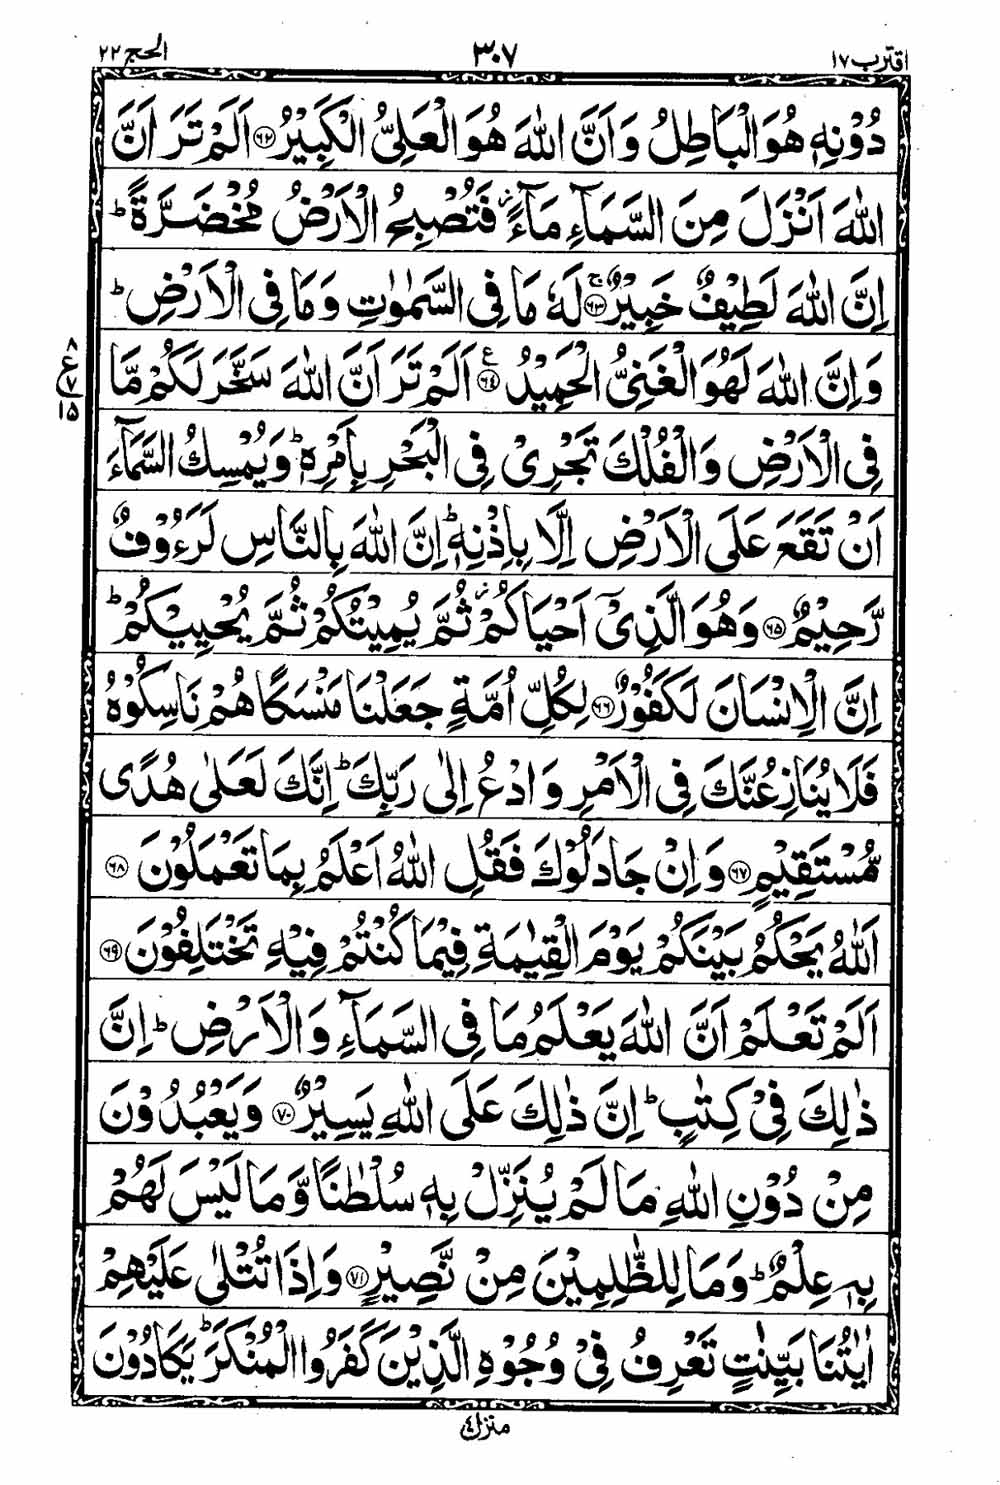 اقترب ۱۷
۳۰۷
الحج ۲۲
دُوْنِهٖ هُوَ الْبَاطِلُ وَ اَنَّ اللّٰهَ هُوَ الْعَلِیُّ الْكَبِیْرُ ﴿۶۲﴾ اَلَمْ تَرَ اَنَّ
اللّٰهَ اَنْزَلَ مِنَ السَّمَآءِ مَآءً ؗ فَتُصْبِحُ الْاَرْضُ مُخْضَرَّةً ؕ
اِنَّ اللّٰهَ لَطِیْفٌ خَبِیْرٌ ﴿۶۳﴾ۚ لَهٗ مَا فِی السَّمٰوٰتِ وَ مَا فِی الْاَرْضِ ؕ
وَ اِنَّ اللّٰهَ لَهُوَ الْغَنِیُّ الْحَمِیْدُ ﴿۶۴﴾ع اَلَمْ تَرَ اَنَّ اللّٰهَ سَخَّرَ لَكُمْ مَّا
۸
ع
۷
۱۵
فِی الْاَرْضِ وَ الْفُلْكَ تَجْرِیْ فِی الْبَحْرِ بِاَمْرِهٖ ؕ وَ یُمْسِكُ السَّمَآءَ
اَنْ تَقَعَ عَلَی الْاَرْضِ اِلَّا بِاِذْنِهٖ ؕ اِنَّ اللّٰهَ بِالنَّاسِ لَرَءُوْفٌ
رَّحِیْمٌ ﴿۶۵﴾ وَ هُوَ الَّذِیْۤ اَحْیَاكُمْ ؗ ثُمَّ یُمِیْتُكُمْ ثُمَّ یُحْیِیْكُمْ ؕ
اِنَّ الْاِنْسَانَ لَكَفُوْرٌ ﴿۶۶﴾ لِكُلِّ اُمَّةٍ جَعَلْنَا مَنْسَكًا هُمْ نَاسِكُوْهُ
فَلَا یُنَازِعُنَّكَ فِی الْاَمْرِ وَ ادْعُ اِلٰی رَبِّكَ ؕ اِنَّكَ لَعَلٰی هُدًی
مُّسْتَقِیْمٍ ﴿۶۷﴾ وَ اِنْ جَادَلُوْكَ فَقُلِ اللّٰهُ اَعْلَمُ بِمَا تَعْمَلُوْنَ ﴿۶۸﴾
اَللّٰهُ یَحْكُمُ بَیْنَكُمْ یَوْمَ الْقِیٰمَةِ فِیْمَا كُنْتُمْ فِیْهِ تَخْتَلِفُوْنَ ﴿۶۹﴾
اَلَمْ تَعْلَمْ اَنَّ اللّٰهَ یَعْلَمُ مَا فِی السَّمَآءِ وَ الْاَرْضِ ؕ اِنَّ
ذٰلِكَ فِیْ كِتٰبٍ ؕ اِنَّ ذٰلِكَ عَلَی اللّٰهِ یَسِیْرٌ ﴿۷۰﴾ وَ یَعْبُدُوْنَ
مِنْ دُوْنِ اللّٰهِ مَا لَمْ یُنَزِّلْ بِهٖ سُلْطٰنًا وَّ مَا لَیْسَ لَهُمْ
بِهٖ عِلْمٌ ؕ وَ مَا لِلظّٰلِمِیْنَ مِنْ نَّصِیْرٍ ﴿۷۱﴾ وَ اِذَا تُتْلٰی عَلَیْهِمْ
اٰیٰتُنَا بَیِّنٰتٍ تَعْرِفُ فِیْ وُجُوْهِ الَّذِیْنَ كَفَرُوا الْمُنْكَرَ ؕ یَكَادُوْنَ
منزل ۴